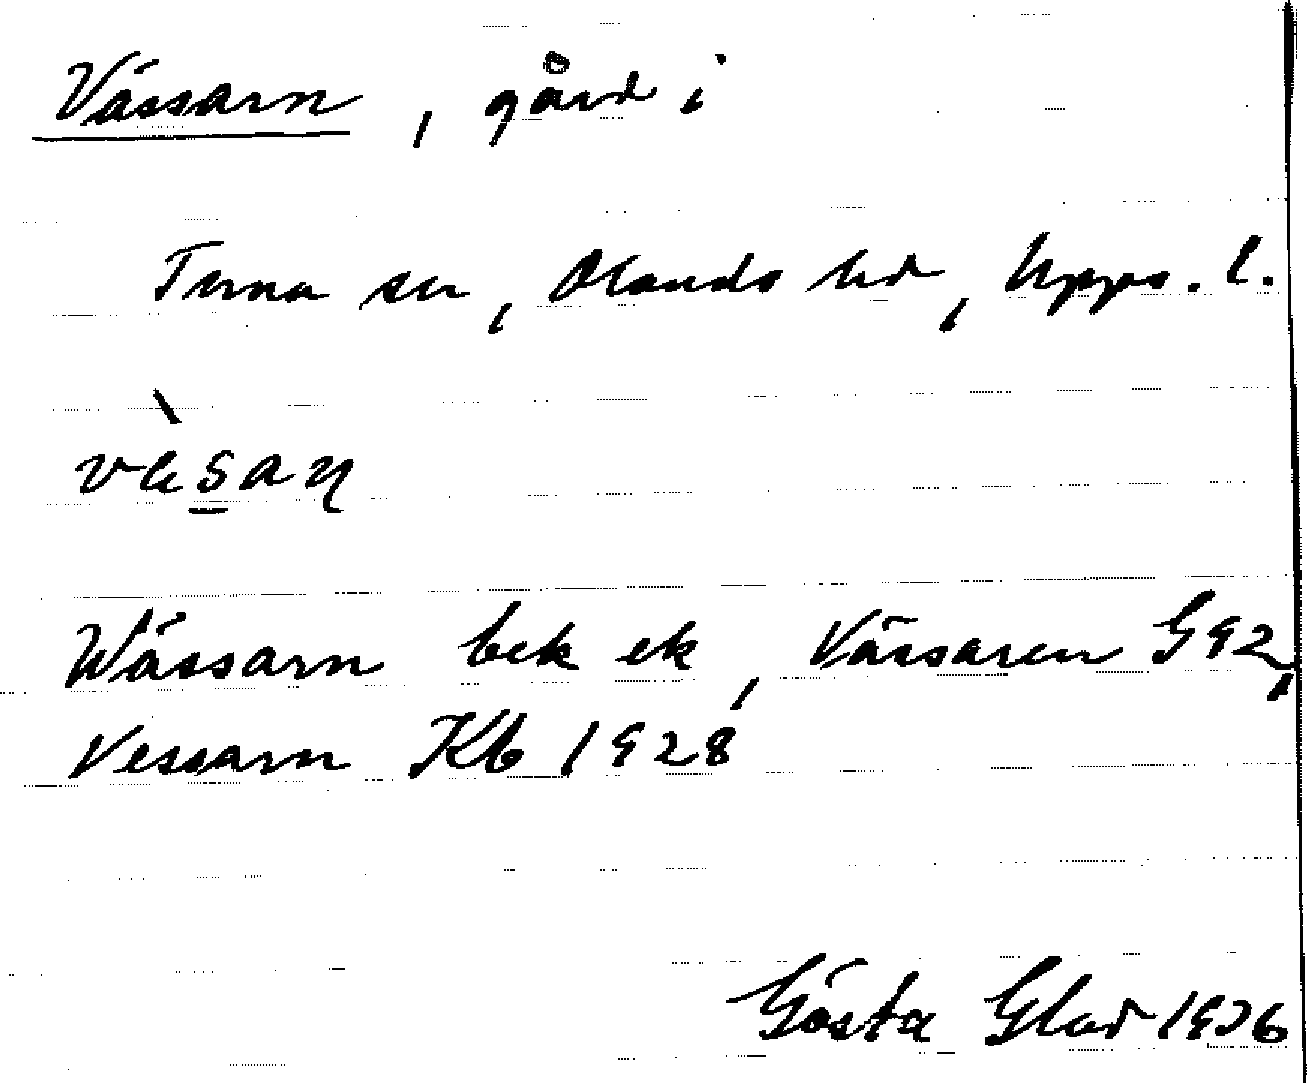 Vässarn, gård i
Tuna sn, Olands hd, Upps. l.
vàs̲aɳ
Wässarn bek ek, Vässaren G 92,
Vessarn Kb 1928
Gösta Glad 1936